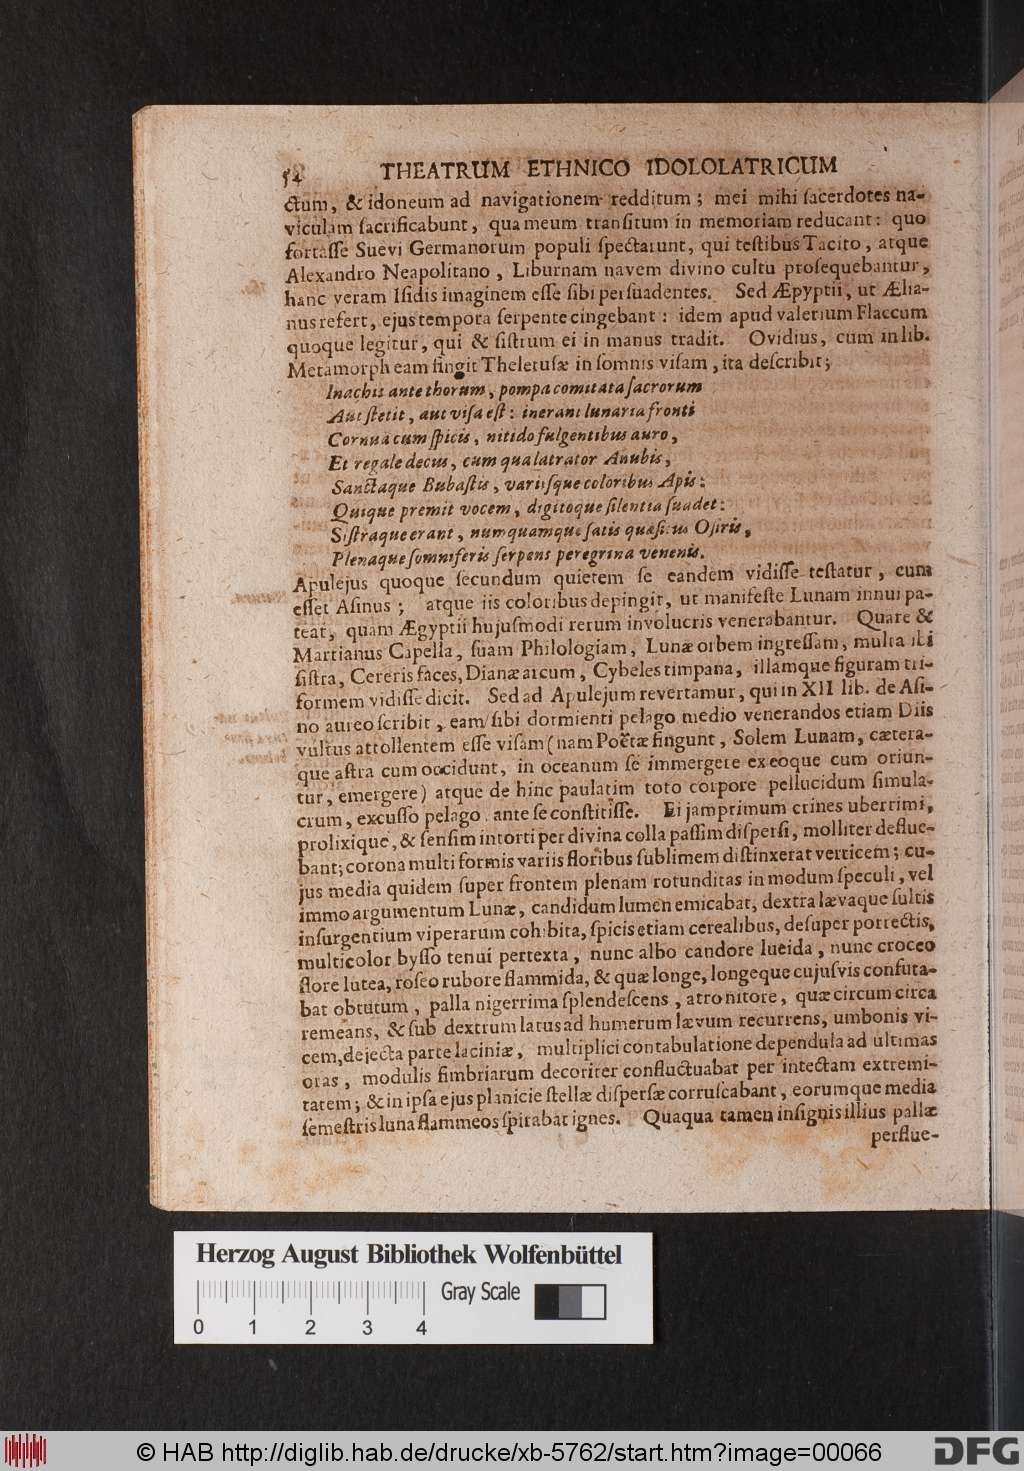 54 THEATRUM ETHNICO IDOLOLATRICUM
ctum, & idoneum ad navigationem redditum; mei mihi ſacerdotes na-
viculam ſacrificabunt, qua meum tranſitum in memoriam reducant: quo
fortaſſe Suevi Germanorum populi ſpectarunt, qui teſtibus Tacito, atque
Alexandro Neapolitano, Liburnam navem divino cultu proſequebantur,
hanc veram Iſidis imaginem eſſe ſibi perſuadentes. Sed Æpyptii, ut Ælia-
nus refert, ejus tempora ſerpente cingebant: idem apud valerium Flaccum
quoque legitur, qui & ſiſtrum ei in manus tradit. Ovidius, cum in lib.
Metamorph eam fingit Theletuſæ in ſomnis viſam, ita deſcribit;
Inachis ante thorum, pompa comitata ſacrorum
Aut ſtetit, aut viſa eſt: inerant lunaria fronti
Cornua cum ſpicis, nitido fulgentibus auro,
Et regale decus, cum qua latrator Anubis,
Sanctaque Bubaſtis, variiſque coloribus Apis:
Quique premit vocem, digitoque ſilentia ſuadet:
Siſtraque erant, numquamque ſatis quæſitus Oſiris,
Plenaque ſomniferis ſerpens peregrina venenis.
Apulejus quoque ſecundum quietem ſe eandem vidiſſe teſtatur, cum
eſſet Aſinus; atque iis coloribus depingit, ut manifeſte Lunam innui pa-
teat, quam Ægyptii hujuſmodi rerum involucris venerabantur. Quare &
Martianus Capella, ſuam Philologiam, Lunæ orbem ingreſſam, multa ibi
ſiſtra, Cereris faces, Dianæ arcum, Cybeles timpana, illamque figuram tri-
formem vidiſſe dicit. Sed ad Apulejum revertamur, qui in XII lib. de Aſi-
no aureo ſcribit, eam ſibi dormienti pelago medio venerandos etiam Diis
vultus attollentem eſſe viſam (nam Poëtæ fingunt, Solem Lunam, cætera-
que aſtra cum occidunt, in oceanum ſe immergere ex eoque cum oriun-
tur, emergere) atque de hinc paulatim toto corpore pellucidum ſimula-
crum, excuſſo pelago. ante ſe conſtitiſſe. Ei jamprimum crines uberrimi,
prolixique, & ſenſim intorti per divina colla paſſim diſperſi, molliter deflue-
bant; corona multi formis variis floribus ſublimem diſtinxerat verticem; cu-
jus media quidem ſuper frontem plenam rotunditas in modum ſpeculi, vel
immo argumentum Lunæ, candidum lumen emicabat, dextra lævaque ſultis
inſurgentium viperarum cohibita, ſpicis etiam cerealibus, deſuper porrectis,
multicolor byſſo tenui pertexta, nunc albo candore lueida, nunc croceo
flore lutea, roſeo rubore flammida, & quæ longe, longeque cujuſvis confuta-
bat obtutum, palla nigerrima ſplendeſcens, atro nitore, quæ circum circa
remeans, & ſub dextrum latus ad humerum lævum recurrens, umbonis vi-
cem, dejecta parte laciniæ, multiplici contabulatione dependula ad ultimas
oras, modulis fimbriarum decoriter confluctuabat per intectam extremi-
tatem; & in ipſa ejus planicie ſtellæ diſperſæ corruſcabant, eorumque media
ſemeſtris luna flammeos ſpirabat ignes. Quaqua tamen inſignis illius pallæ
perflue-
Herzog August Bibliothek Wolfenbüttel
Gray Scale
0 1 2 3 4
© HAB http://diglib.hab.de/drucke/xb-5762/start.htm?image=00066
DFG